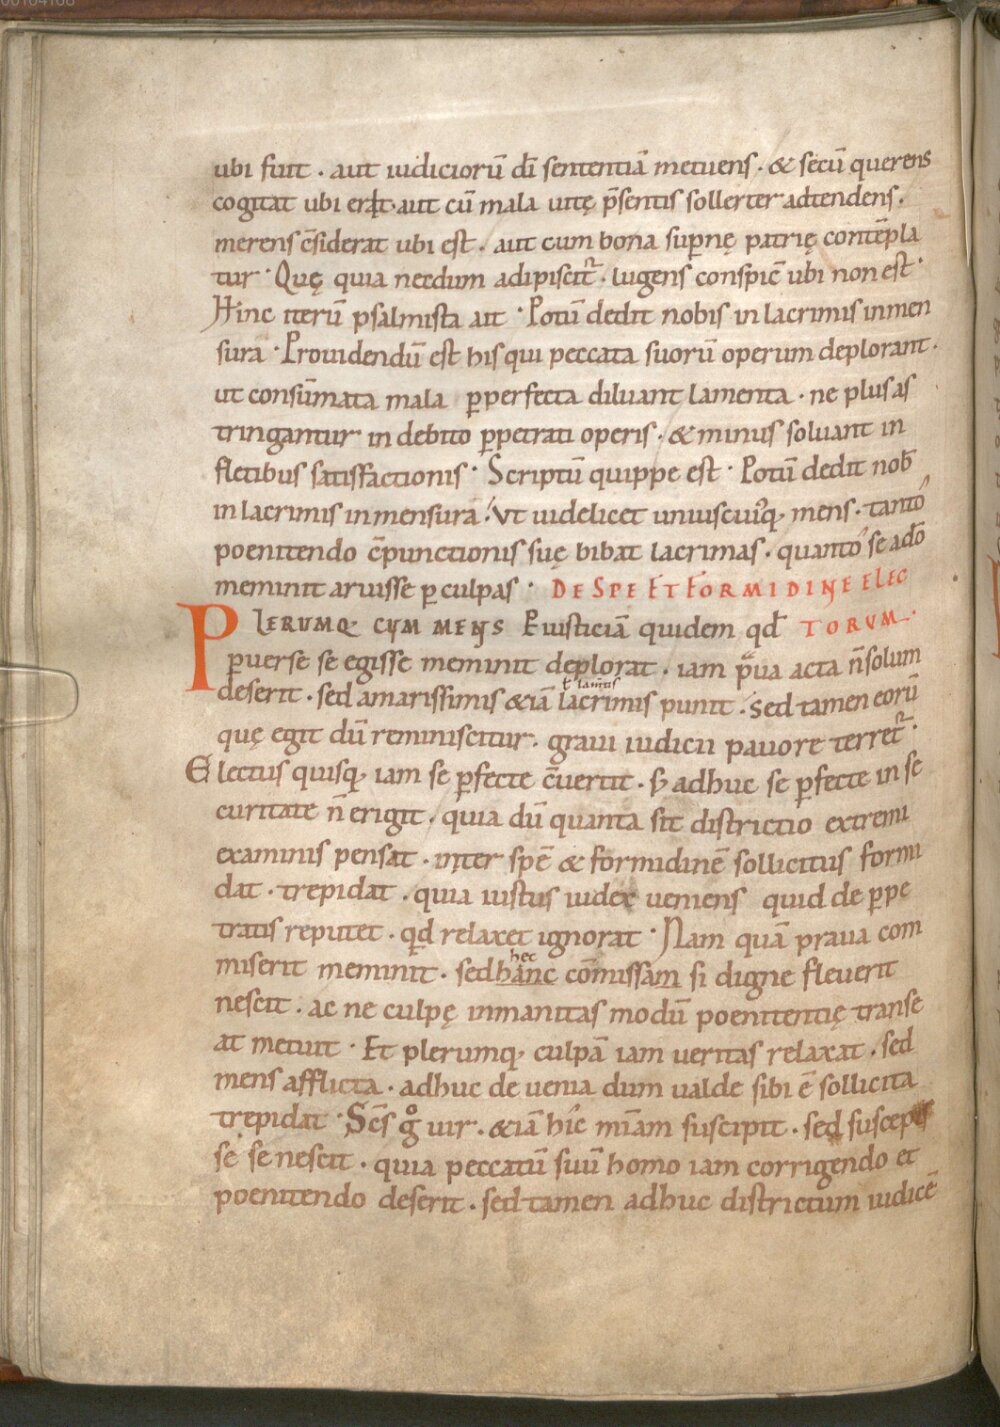 ubi fuit · aut iudiciorū dī sententiā metuens · & secū querens
cogitat ubi erit · aut cū mala uitę p̄sentis sollerter adtendens ·
merens c̄siderat ubi est · aut cum bona supernę patrię contēpla
tur · Quę quia necdum adipiscit᷑ · lugens conspic̄ ubi non est ·
Hinc iterū psalmista ait · Potū dedit nobis in lacrimis in men
sura · Prouidendū est his qui peccata suorū operum deplorant ·
ut consūmata mala ꝑ perfecta diluant lamenta · ne plus as
tringantur in debito ꝑpetrati operis · & minus soluant in
fletibus satisfactionis · Scriptū quippe est · Potū dedit nob̄
in lacrimis in mensura · Vt uidelicet uniuscuiꝰq; mens · tanto
poenitendo c̄punctionis suę bibat lacrimas · quanto se a dō
meminit aruisse ꝑ culpas · DE SPE ET FORMIDINE ELEC
PLERUMQ; CUM MENS E iusticiā quidem qd̄ TORUM ·
ꝑuerse se egisse meminit deplorat · iam praua acta n̄ solum
deserit · sed amarissimis &iā lacrimis punit · sed tamen eorū
quę egit dū reminiscitur · graui iudicii pauore terret᷑ ·
Electus quisq; iam se ꝑfecte c̄uertit · s; adhuc se ꝑfecte in se
curitate n̄ erigit · quia dū quanta sit districtio extremi
examinis pensat · inter spē & formidinē sollicitus formi
dat · trepidat · quia iustus iudex ueniens quid de ꝑpe
tratis reputet · qd relaxet ignorat · Nam quā praua com
hec
miserit meminit · sed hanc cōmissam si digne fleuerit
nescit · ac ne culpę inmanitas modū poenitentię transe
at metuit · Et plerumq; culpā iam ueritas relaxat · sed
mens afflicta · adhuc de uenia dum ualde sibi ē sollicita
trepidat · Sc̄s gͦ uir · &iā hic mīam suscipit · sed suscepis
se se nescit · quia peccatū suū homo iam corrigendo et
poenitendo deserit · sed tamen adhuc districtum iudicē